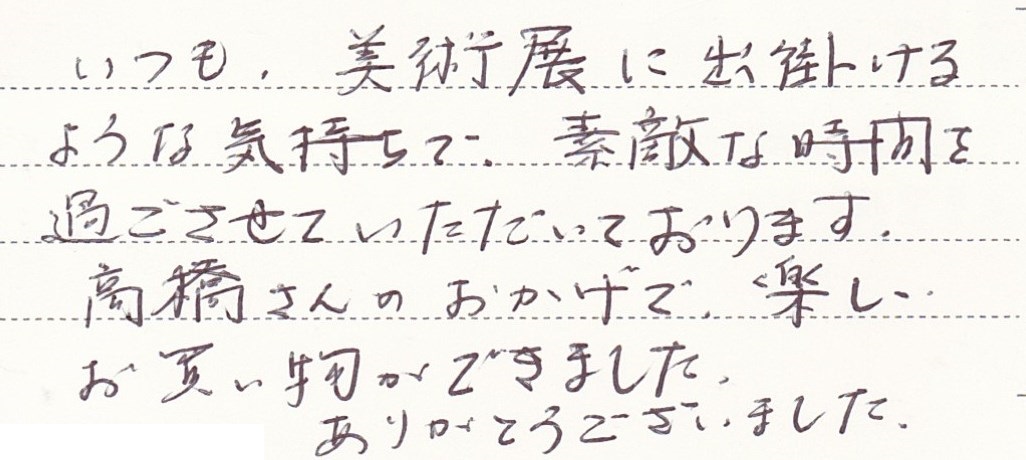 いつも、美術展に出掛ける
ような気持ちで、素敵な時間を
過ごさせていただいております。
高橋さんのおかげで、楽しい
お買い物ができました。
ありがとうございました。